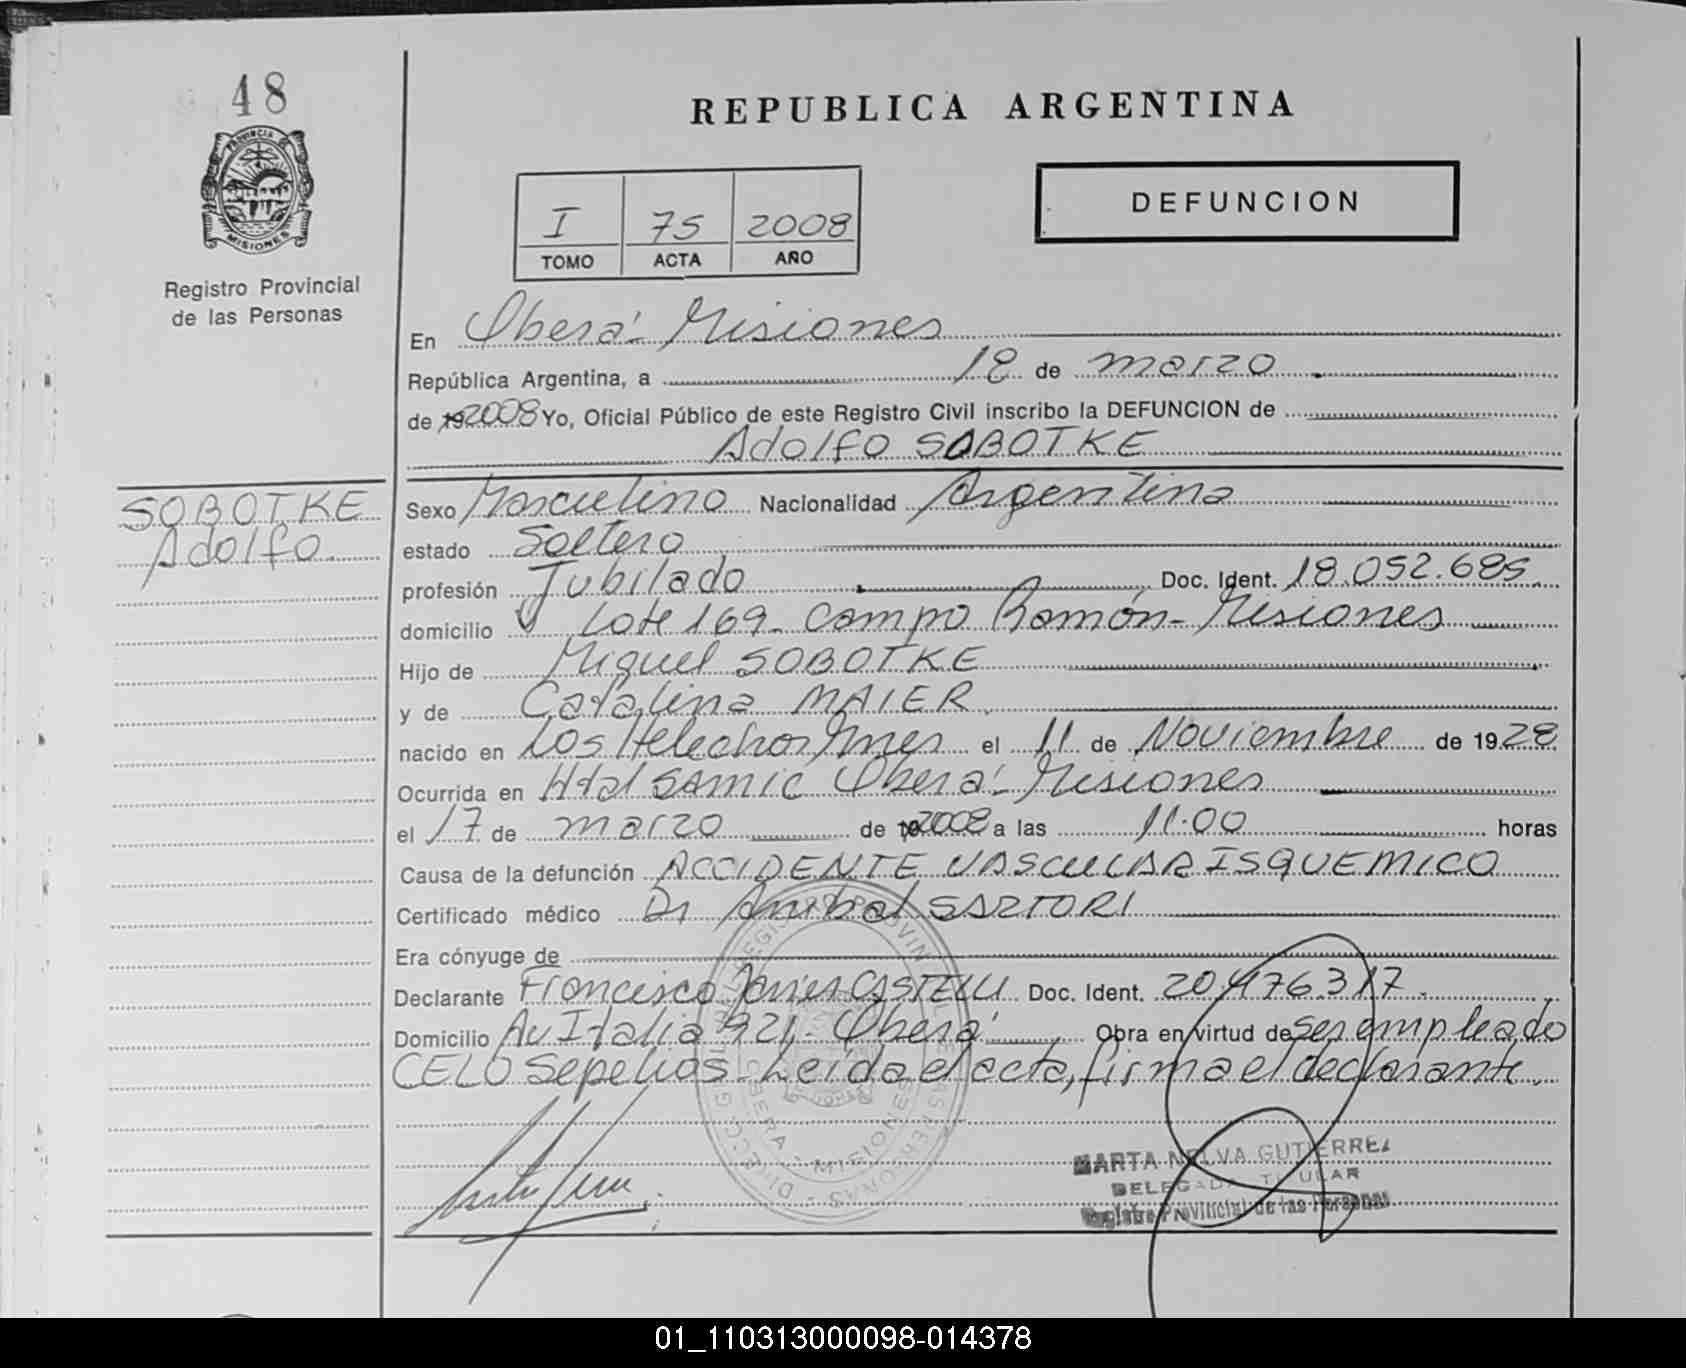 48
PROVINCIA DE
MISIONES
Registro Provincial
de las Personas
REPUBLICA ARGENTINA
I 75 2008
TOMO ACTA AÑO
DEFUNCION
En Oberá - Misiones
República Argentina, a 18 de marzo
de 192008 Yo, Oficial Público de este Registro Civil inscribo la DEFUNCION de
Adolfo SOBOTKE
SOBOTKE
Adolfo
Sexo Masculino Nacionalidad Argentina
estado Soltero
profesión Jubilado Doc. Ident. 18.052.685
domicilio Lote 169 - Campo Ramón - Misiones
Hijo de Miguel SOBOTKE
y de Catalina MAIER
nacido en Los Helechos Mnes el 11 de Noviembre de 1928
Ocurrida en Htal SAMIC Oberá - Misiones
el 17 de marzo de 2008 a las 11.00 horas
Causa de la defunción ACCIDENTE VASCULAR ISQUEMICO
Certificado médico Dr Anibal SARTORI
Era cónyuge de
Declarante Francisco CASTELLI Doc. Ident. 20.476.317
Domicilio Av Italia 921 - Oberá Obra en virtud de ser empleado
CELO Sepelios - Leída el acta, firma el declarante.
OBERA - MISIONES
MARTA NELVA GUTIERREZ
DELEGADA TITULAR
Registro Provincial de las Personas
01_110313000098-014378